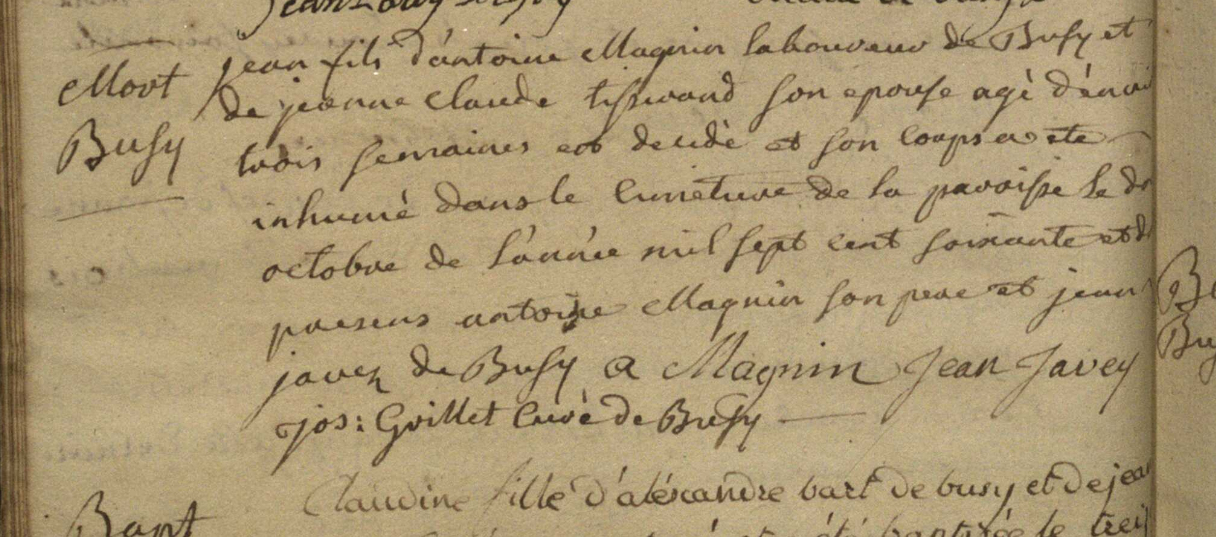 Mort
Busy
jean fils d'antoine Magnin laboureur de Busy et
de jeanne Claude tisserand son epouse agé d'envi
trois semaines est decidé et son corps a ete
inhumé dans le cimetiere de la paroisse le do
octobre de l'année mil sept cent soixante et d
presens antoine Magnin son pere et jean
javey de Busy a Magnin Jean Javey
jos: Grillet Curé de Busy
Bapt
Claudine fille d'aléxandre bart de busy et de jean
baptisée le trei